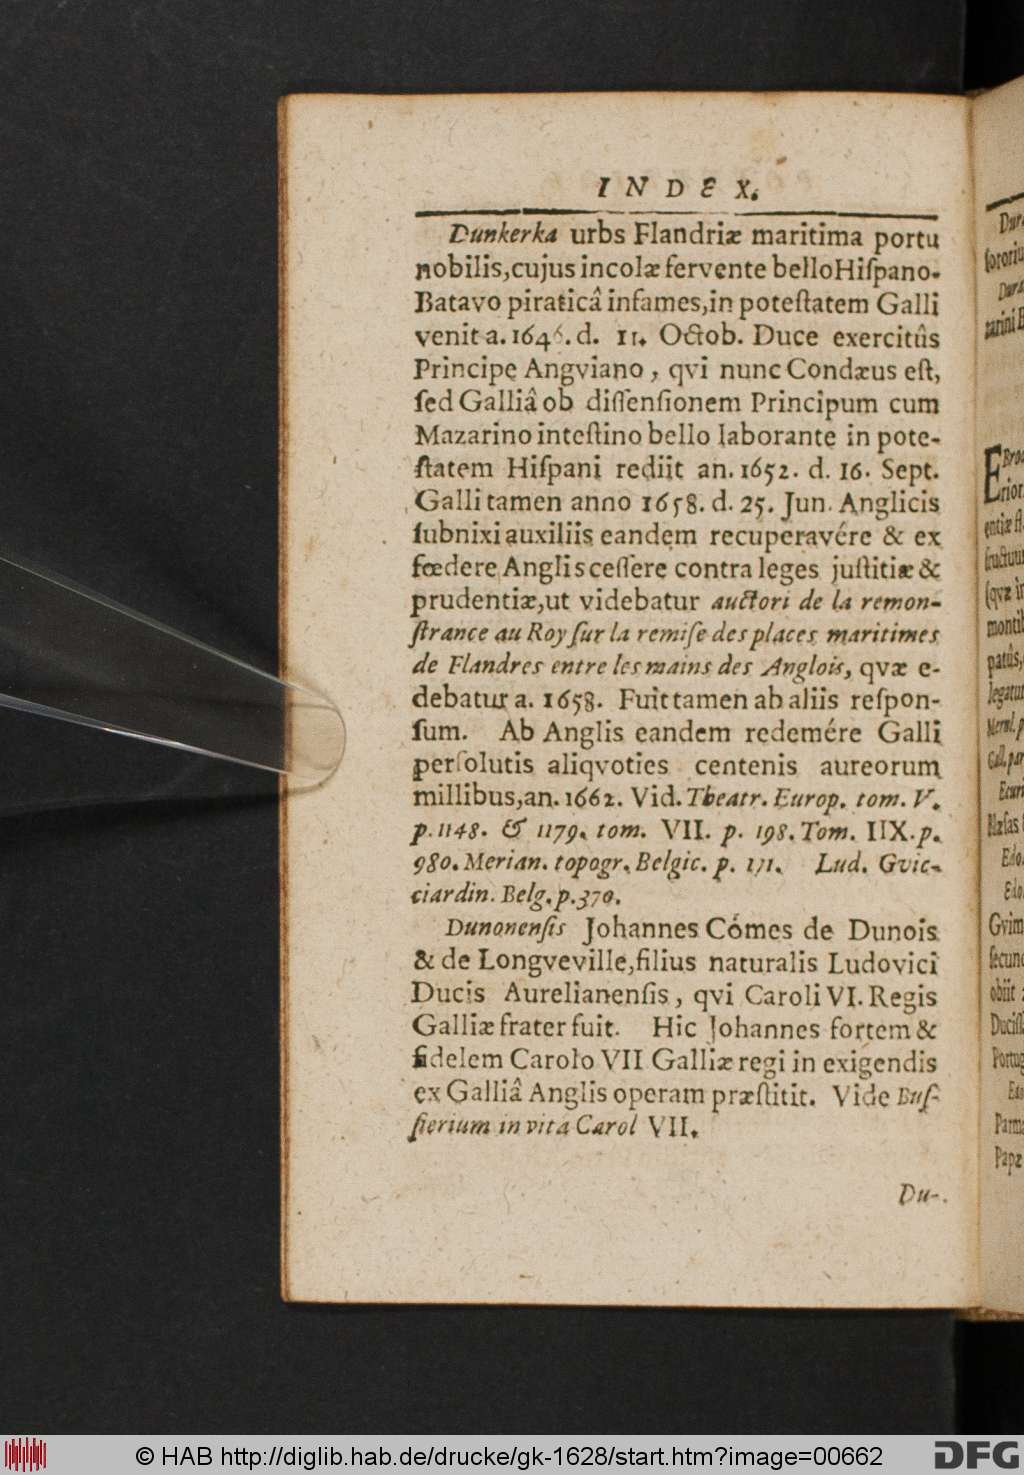 INDEX.
Dunkerka urbs Flandriæ maritima portu
nobilis, cujus incolæ fervente bello Hiſpano-
Batavo piraticâ infames, in poteſtatem Galli
venit a. 1646. d. 11. Octob. Duce exercitûs
Principe Angviano, qvi nunc Condæus eſt,
ſed Galliâ ob diſſenſionem Principum cum
Mazarino inteſtino bello laborante in pote-
ſtatem Hiſpani rediit an. 1652. d. 16. Sept.
Galli tamen anno 1658. d. 25. Jun. Anglicis
ſubnixi auxiliis eandem recuperavére & ex
fœdere Anglis ceſſere contra leges juſtitiæ &
prudentiæ, ut videbatur auctori de la remon-
ſtrance au Roy ſur la remiſe des places maritimes
de Flandres entre les mains des Anglois, qvæ e-
debatur a. 1658. Fuit tamen ab aliis reſpon-
ſum. Ab Anglis eandem redemére Galli
perſolutis aliqvoties centenis aureorum
millibus, an. 1662. Vid. Theatr. Europ. tom. V.
p. 1148. & 1179. tom. VII. p. 198. Tom. IIX. p.
980. Merian. topogr. Belgic. p. 171. Lud. Gvic-
ciardin. Belg. p. 370.
Dunonenſis Johannes Cómes de Dunois
& de Longveville, filius naturalis Ludovici
Ducis Aurelianenſis, qvi Caroli VI. Regis
Galliæ frater fuit. Hic Johannes fortem &
fidelem Carolo VII Galliæ regi in exigendis
ex Galliâ Anglis operam præſtitit. Vide Buſ-
ſierium in vita Carol VII.
Du-
© HAB http://diglib.hab.de/drucke/gk-1628/start.htm?image=00662
DFG